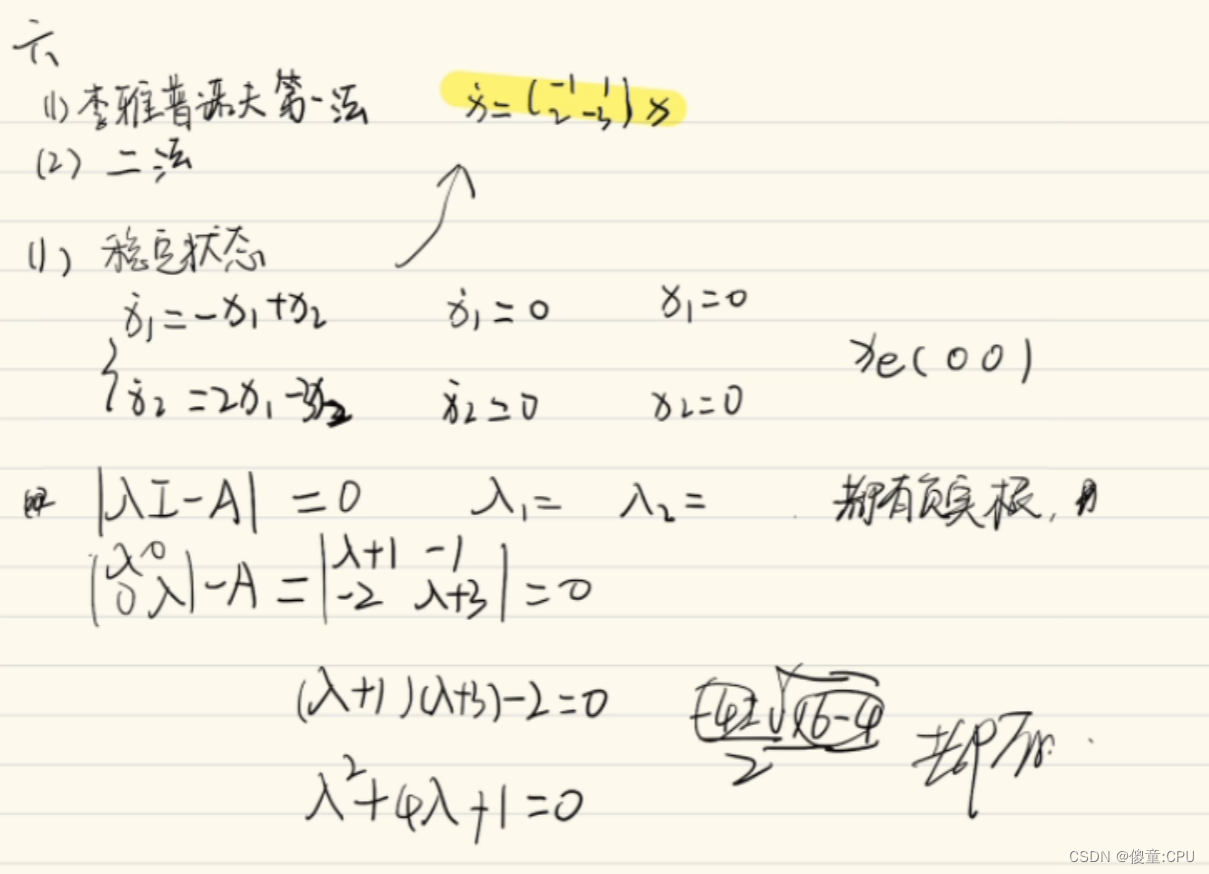 六、
(1) 李雅普诺夫第一法 ẋ=(-1 1 2 -3)x
(2) 二法
(1) 稳定状态
ẋ₁=-x₁+x₂ ẋ₁=0 x₁=0
{ẋ₂=2x₁-3x₂ ẋ₂=0 x₂=0 xe(0 0)
|λI-A|=0 λ₁= λ₂= 都有负实根,
|λ 0 0 λ|-A=|λ+1 -1 -2 λ+3|=0
(λ+1)(λ+3)-2=0 -4±√16-4 2
λ²+4λ+1=0
CSDN @傻童:CPU